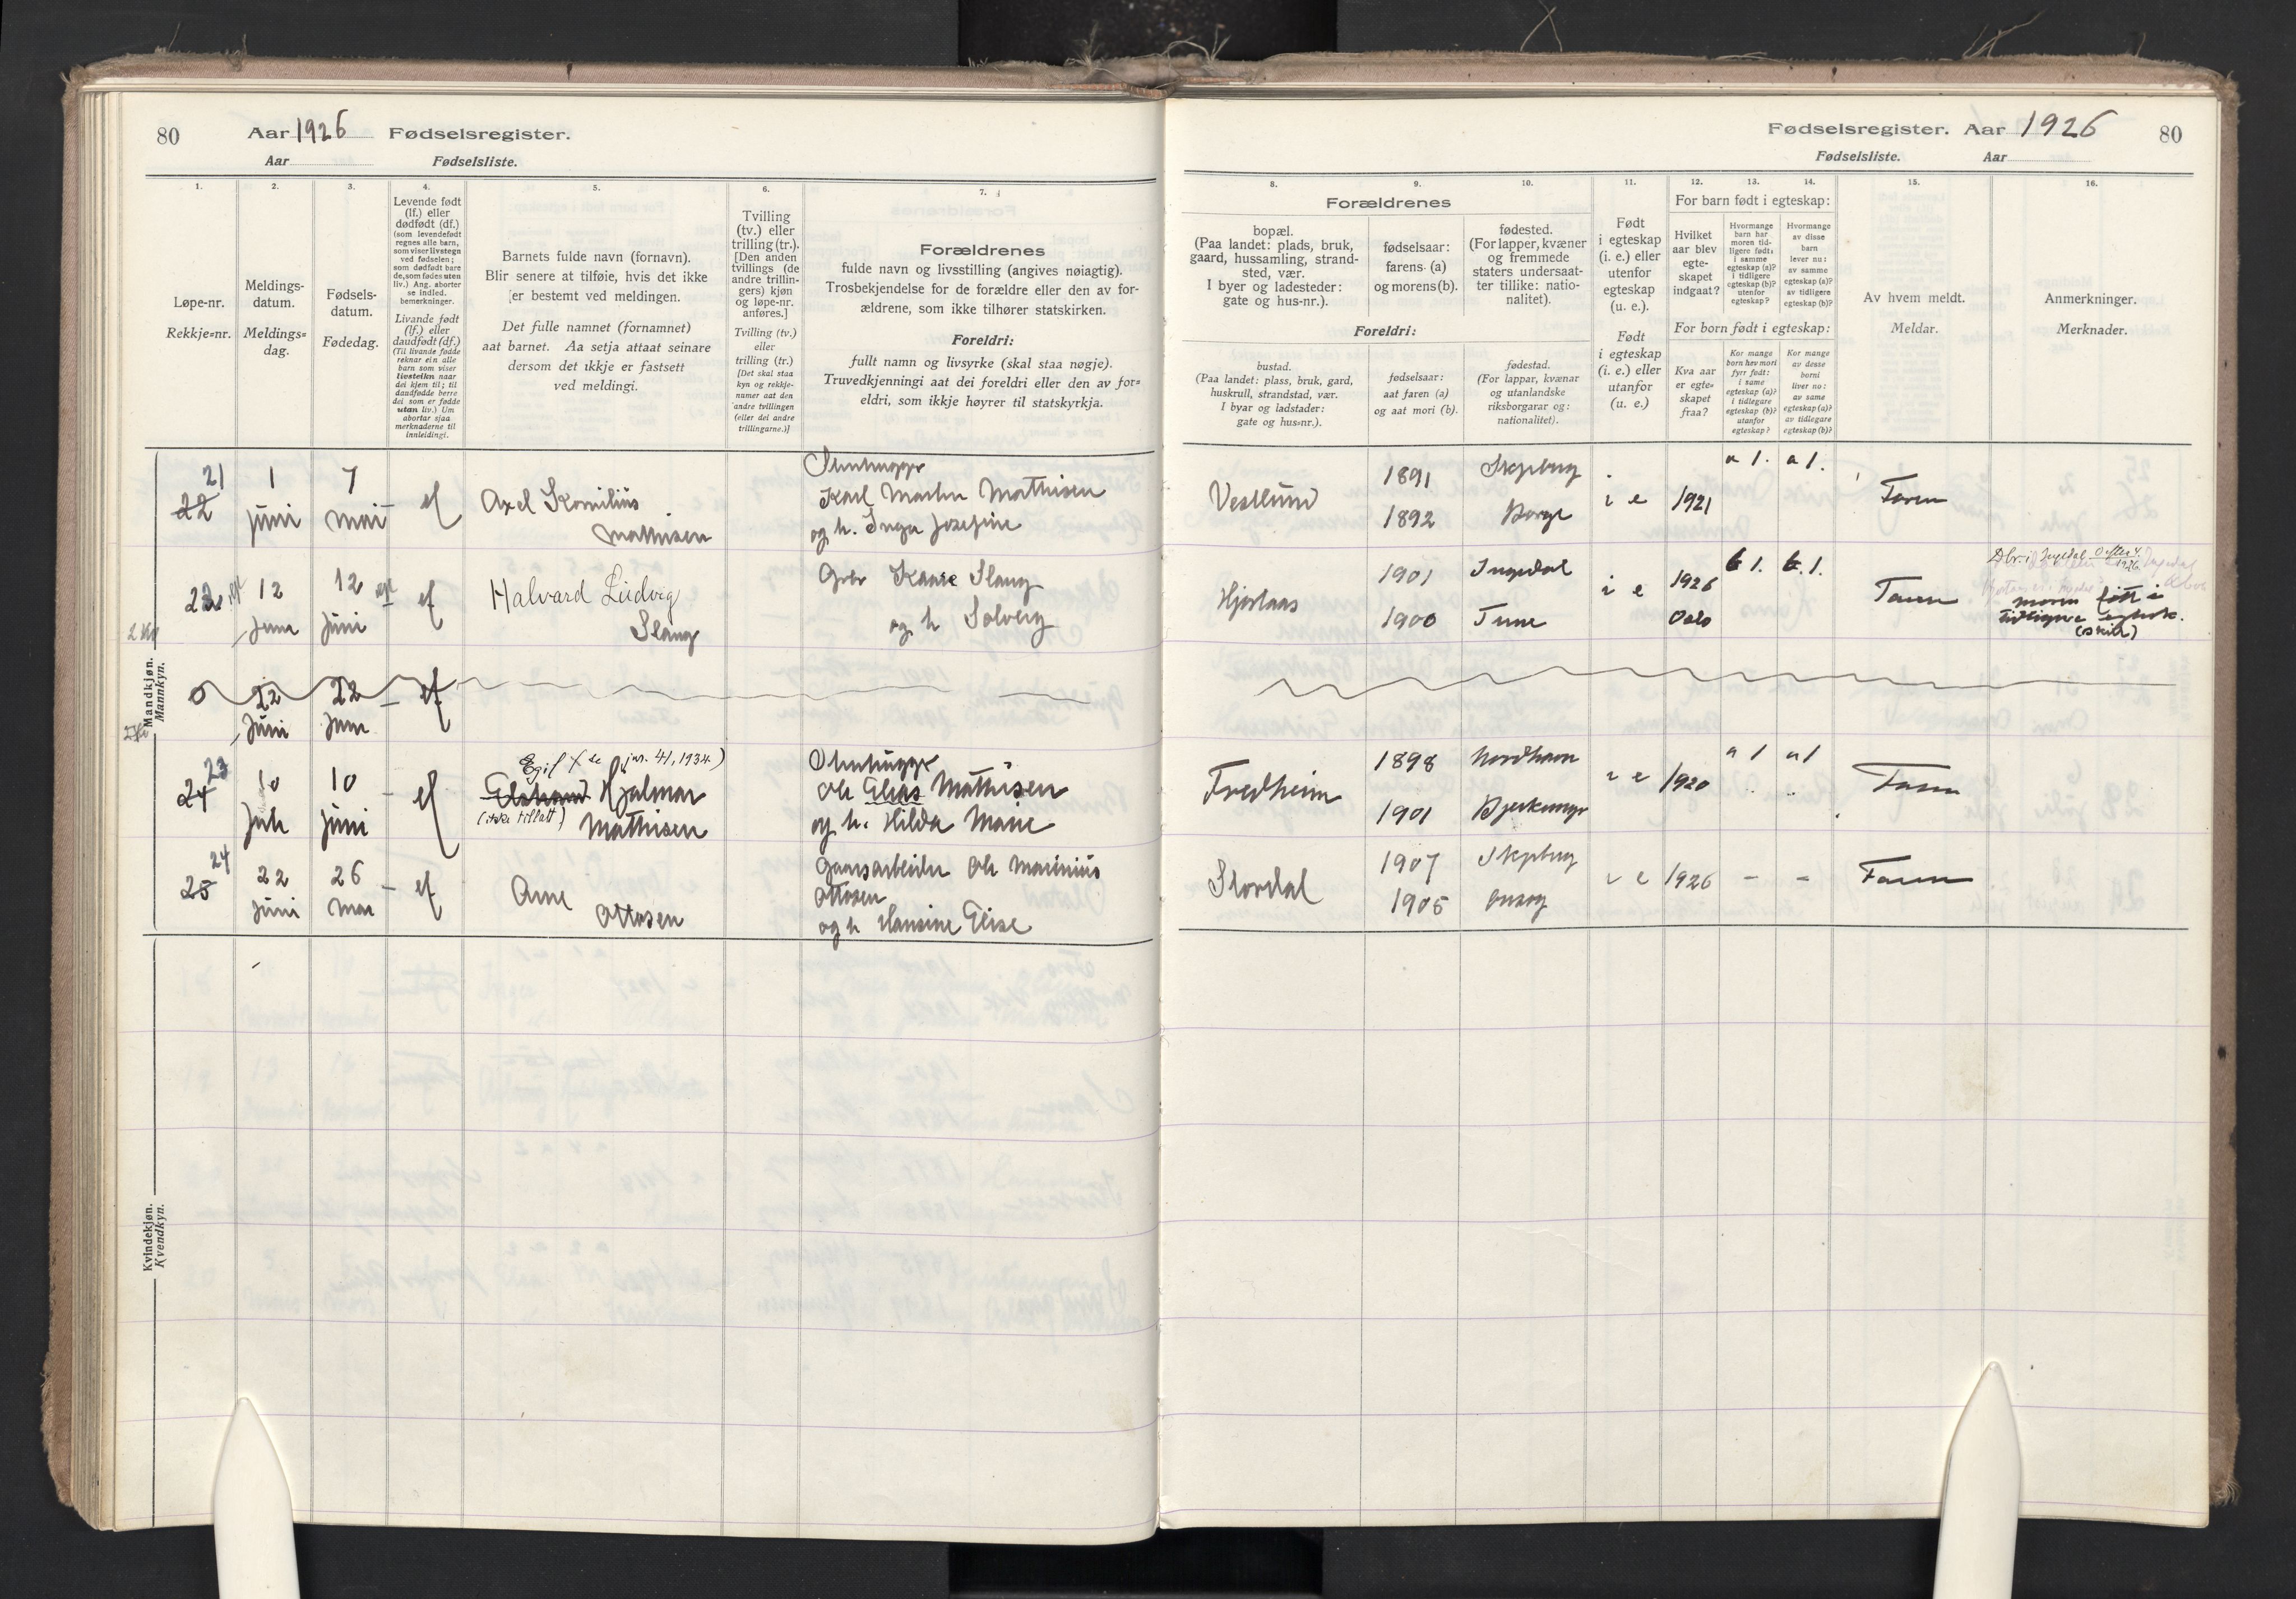 80
Aar 1926
Fødselsregister.
Aar
Fødselsliste.
1.
Løpe-nr.
Rekkje-nr.
2.
Meldings-
datum.
Meldings-
dag.
3.
Fødsels-
datum.
Fødedag.
4.
Levende født
(lf.) eller
dødfødt (df.)
(som levendefødt
regnes alle barn,
som viser livstegn
ved fødselen;
som dødfødt bare
de, som fødes uten
liv.) Ang. aborter
se indled.
bemerkninger.
Livande født
(lf.) eller
daudfødt (df.)
(Til livande fødde
reknar ein alle
barn som viser
livsteikn naar
dei kjem til; til
daudfødde berre
dei som er fødde
utan liv.) Um
abortar sjaa
merknaderne til
innleidingi.
5.
Barnets fulde navn (fornavn).
Blir senere at tilføie, hvis det ikke
er bestemt ved meldingen.
Det fulle namnet (fornamnet)
aat barnet. Aa setja attaat seinare
dersom det ikkje er fastsett
ved meldingi.
6.
Tvilling
(tv.) eller
trilling (tr.).
[Den anden
tvillings (de
andre trillin-
gers) kjøn
og løpe-nr.
anføres.]
Tvilling (tv.)
eller
trilling (tr.)
[Det skal staa
kyn og rekkje-
numer aat den
andre tvillingen
(eller dei andre
trillingarne.)]
7.
Forældrenes
fulde navn og livsstilling (angives nøiagtig).
Trosbekjendelse for de forældre eller den av for-
ældrene, som ikke tilhører statskirken.
Foreldri:
fullt namn og livsyrke (skal staa nøgje).
Truvedkjenningi aat dei foreldri eller den av for-
eldri, som ikkje høyrer til statskyrkja.
21
22
1
juni
7
mai
Axel Kornilius
Mathisen
Stenhugger
Karl Martin Mathisen
og h. Inga Josefine
12
Juni
12
Juni
Halvard Ludvig
Slang
Kaare Slang
og h Solveig
22
Juni
22
Juni
23
24
10
10
Juni
Egil
jnr. 41, 1934.)
Hjalmar
(ikke tillatt)
Mathisen
Stenhugger
Ole Elias Mathisen
og h. Hilda Marie
24
25
22
Juni
26
mai
Arne
Ottosen
Ole Marinius
Ottosen
og h Hansine Elise
Mandkjøn.
Mannkyn.
Kvindekjøn.
Kvendkyn.
Fødselsregister. Aar 1926
80
Fødselsliste.
Aar
8.
Forældrenes
bopæl.
(Paa landet: plads, bruk,
gaard, hussamling, strand-
sted, vær.
I byer og ladesteder:
gate og hus-nr.).
Foreldri:
bustad.
(Paa landet: plass, bruk, gard,
huskrull, strandstad, vær.
I byar og ladstader:
gate og hus-nr.).
9.
fødselsaar:
farens (a)
og morens (b).
fødselsaar:
aat faren (a)
og aat mori (b).
10.
fødested.
(For lapper, kvæner
og fremmede
staters undersaat-
ter tillike: natio-
nalitet).
fødestad.
(For lappar, kvænar
og utanlandske
riksborgarar og:
nationalitet).
11.
Født
i egteskap
(i. e.) eller
utenfor
egteskap
(u. e.).
Født
i egteskap
(i. e.) eller
utanfor
(u. e.)
12.
13.
14.
For barn født i egteskap:
Hvilket
aar blev
egte-
skapet
indgaat?
Hvormange
barn har
moren tid-
ligere født:
i samme
egteskap (a)?
i tidligere
egteskap (b)?
utenfor
egteskap?
Hvormange
av disse
barn
lever nu:
av samme
egteskap (a)?
av tidligere
egteskap (b)?
For born født i egteskap:
Kva aar
er egte-
skapet
fraa?
Kor mange
born hev mori
fyrr født:
i same
egteskap (a)?
i tidlegare
egteskap (b)?
utanfor
egteskap?
Kor mange
av desse
borni
liver no:
av same
egteskap (a)?
av tidlegare
egteskap (b)?
15.
Av hvem meldt.
Meldar.
16.
Anmerkninger.
Merknader.
Vestlund
1891
1892
Skjeberg
Borge
i e
1921
a 1.
a 1.
Faren
1901
1900
Ingedal
Tune
i e
1926
Oslo
b 1.
b. 1.
Faren
moren født i
tidligere egtesk.
(skilt)
Fredheim
1898
1901
i e
1920
a 1
a 1
Faren
Stordal
1907
1905
Skjeberg
Onsøy
i e
1926
Faren